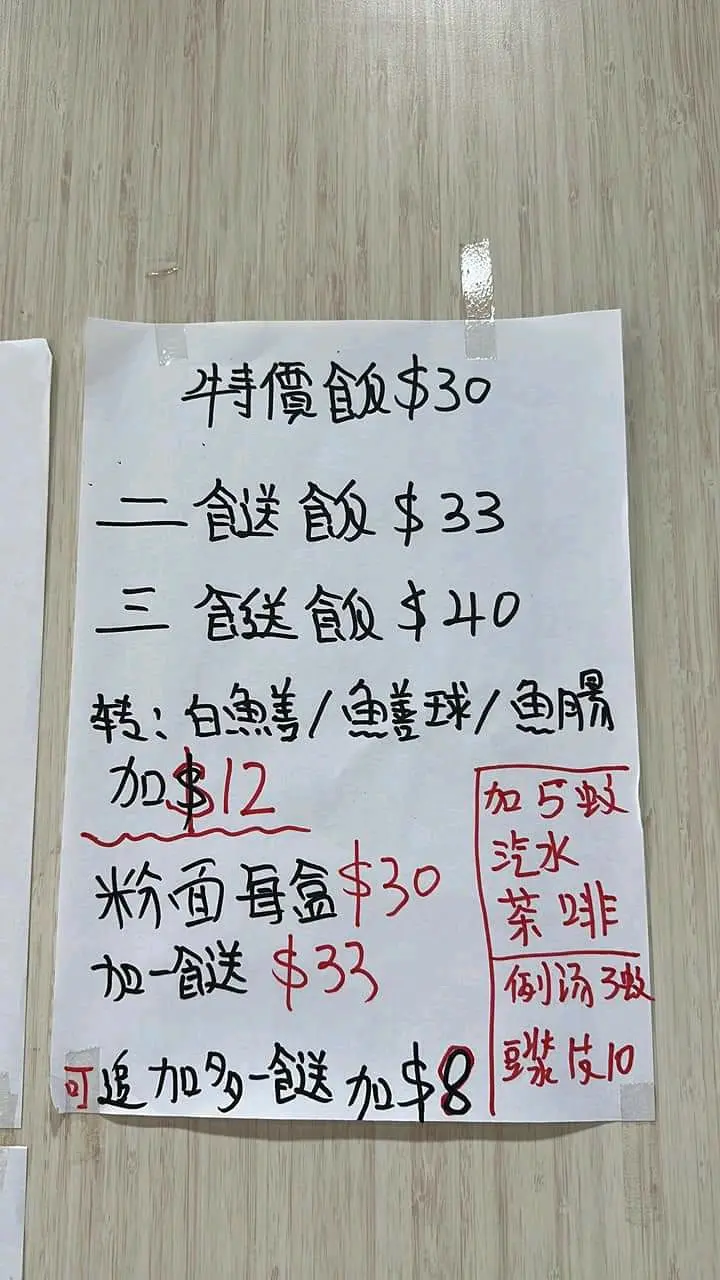 特價飯$30
二餸飯$33
三餸飯$40
转：白鱔/鱔球/魚腸
加$12
粉面每盒$30
加一餸 $33
可追加多一餸 加$8
加5蚊
汽水
茶啡
例汤3蚊
豆漿 10